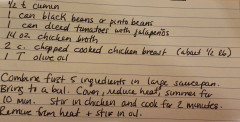 1/2 t cumin
1 can black beans or pinto beans
1 can diced tomatoes with jalapeños
14 oz chicken broth
2 c. chopped cooked chicken breast (about 1/2 lb)
1 T olive oil
Combine first 5 ingredients in large saucepan.
Bring to a boil. Cover, reduce heat, simmer for
10 min. Stir in chicken and cook for 2 minutes.
Remove from heat + stir in oil.